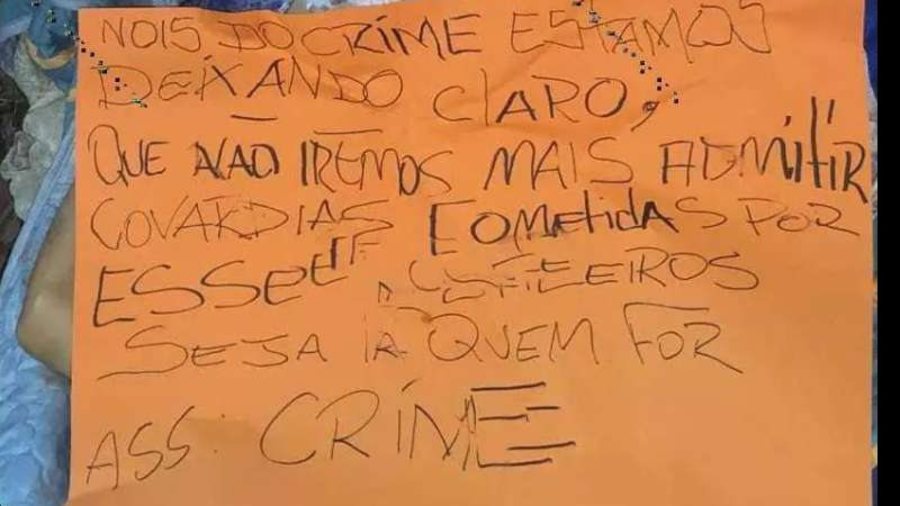 NOIS DO CRIME ESTAMOS
DEIXANDO CLARO,
QUE NÃO IREMOS MAIS ADMITIR
COVARDIAS COMETIDAS POR
ESSE
SEJA LA QUEM FOR
ASS: CRIME